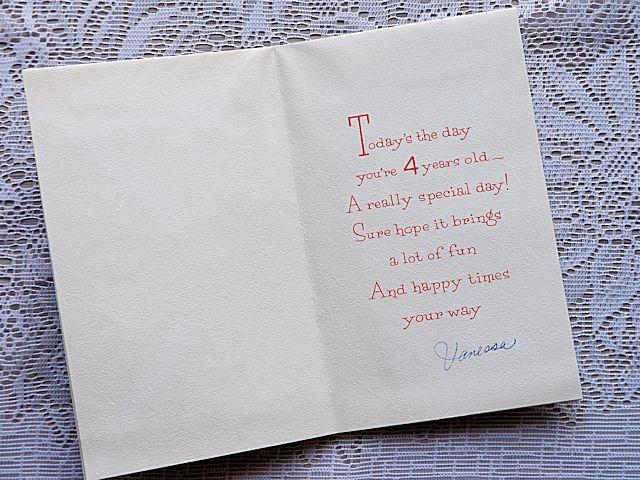 Today's the day
you're 4 years old ~
A really special day!
Sure hope it brings
a lot of fun
And happy times
your way
Vanessa